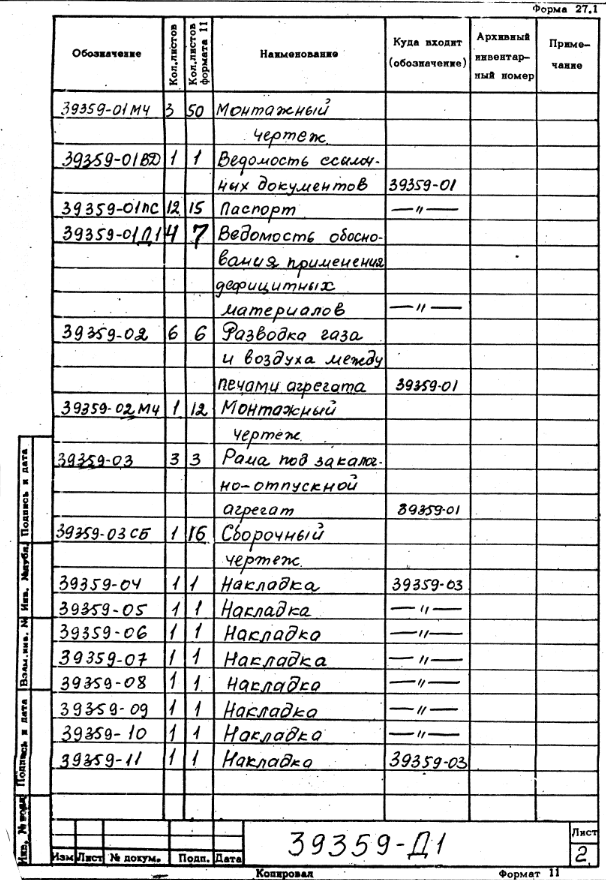 Форма 27.1
Обозначение Кол.листов Кол.листов формата 11 Наименование Куда входит (обозначение) Архивный инвентарный номер Примечание
39359-01МЧ 3 50 Монтажный
чертеж
39359-01ВД 1 1 Ведомость ссылоч-
ных документов 39359-01
39359-01ПС 12 15 Паспорт —〃—
39359-01Д1 4 7 Ведомость обосно-
вания применения
дефицитных
материалов —〃—
39359-02 6 6 Разводка газа
и воздуха между
печами агрегата 39359-01
39359-02МЧ 1 12 Монтажный
чертеж
39359-03 3 3 Рама под закалоч-
но-отпускной
агрегат 39359-01
39359-03СБ 1 16 Сборочный
чертеж
39359-04 1 1 Накладка 39359-03
39359-05 1 1 Накладка —〃—
39359-06 1 1 Накладка —〃—
39359-07 1 1 Накладка —〃—
39359-08 1 1 Накладка —〃—
39359-09 1 1 Накладка —〃—
39359-10 1 1 Накладка —〃—
39359-11 1 1 Накладка 39359-03
Инв. № подл. Подпись и дата Взам.инв. № Инв. №дубл. Подпись и дата
39359-Д1
Лист
2
Изм Лист № докум. Подп. Дата
Копировал Формат 11